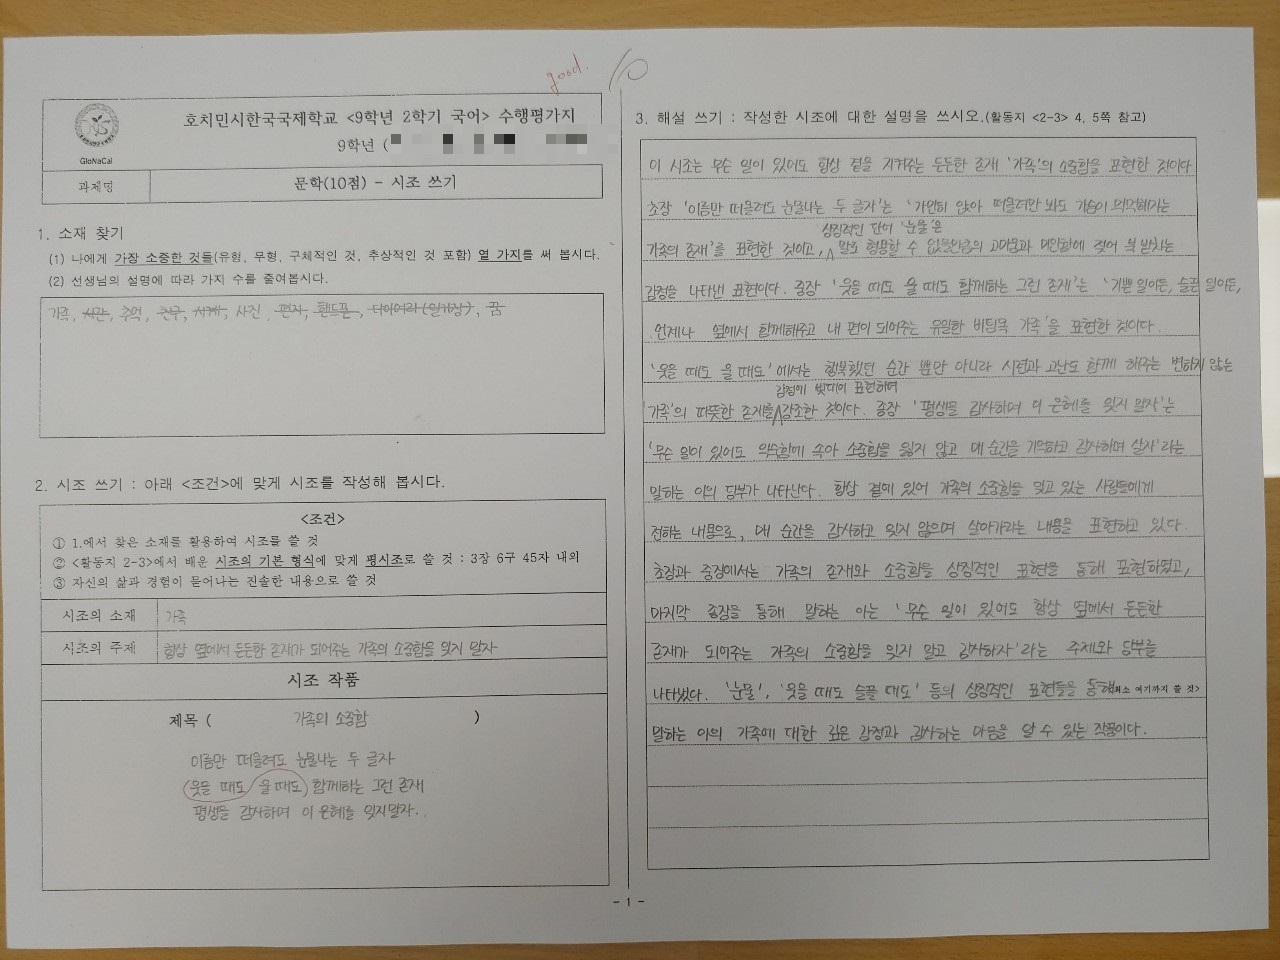 good. 10
GloNaCal
호치민시한국국제학교 <9학년 2학기 국어> 수행평가지
9학년 (
과제명
문학(10점) - 시조 쓰기
1. 소재 찾기
(1) 나에게 가장 소중한 것들(유형, 무형, 구체적인 것, 추상적인 것 포함) 열 가지를 써 봅시다.
(2) 선생님의 설명에 따라 가지 수를 줄여봅시다.
가족, 시간, 추억, 친구, 시계, 사진, 편지, 핸드폰, 다이어리(일기장), 꿈
2. 시조 쓰기 : 아래 <조건>에 맞게 시조를 작성해 봅시다.
<조건>
① 1.에서 찾은 소재를 활용하여 시조를 쓸 것
② <활동지 2-3>에서 배운 시조의 기본 형식에 맞게 평시조로 쓸 것 : 3장 6구 45자 내외
③ 자신의 삶과 경험이 묻어나는 진솔한 내용으로 쓸 것
시조의 소재
가족
시조의 주제
항상 옆에서 든든한 존재가 되어주는 가족의 소중함을 잊지 말자
시조 작품
제목 ( 가족의 소중함 )
이름만 떠올려도 눈물나는 두 글자
웃을 때도 울 때도 함께하는 그런 존재
평생을 감사하며 이 은혜를 잊지말자..
3. 해설 쓰기 : 작성한 시조에 대한 설명을 쓰시오.(활동지 <2-3> 4, 5쪽 참고)
이 시조는 무슨 일이 있어도 항상 곁을 지켜주는 든든한 존재 '가족'의 소중함을 표현한 것이다
초장 '이름만 떠올려도 눈물나는 두 글자'는 '가만히 앉아 떠올려만 봐도 가슴이 먹먹해지는
상징적인 단어 '눈물'은
가족의 존재'를 표현한 것이고, 말로 형용할 수 없을만큼의 고마움과 미안함에 젖어 북받치는
감정을 나타낸 표현이다. 중장 '웃을 때도 울 때도 함께하는 그런 존재'는 '기쁜 일이든, 슬픈 일이든,
언제나 옆에서 함께해주고 내 편이 되어주는 유일한 버팀목 가족'을 표현한 것이다.
'웃을 때도 울 때도'에서는 행복했던 순간 뿐만 아니라 시련과 고난도 함께 해주는 변하지 않는
감정에 빗대어 표현하며
'가족'의 따뜻한 존재를 강조한 것이다. 종장 '평생을 감사하며 이 은혜를 잊지 말자'는
'무슨 일이 있어도 익숙함에 속아 소중함을 잃지 않고 매 순간을 기억하고 감사하며 살자'라는
말하는 이의 당부가 나타난다. 항상 곁에 있어 가족의 소중함을 잊고 있는 사람들에게
전하는 내용으로, 매 순간을 감사하고 잊지 않으며 살아가라는 내용을 표현하고 있다.
초장과 중장에서는 가족의 존재와 소중함을 상징적인 표현을 통해 표현하였고,
마지막 종장을 통해 말하는 이는 '무슨 일이 있어도 항상 옆에서 든든한
존재가 되어주는 가족의 소중함을 잊지 말고 감사하자'라는 주제와 당부를
나타냈다. '눈물', '웃을 때도 슬플 때도' 등의 상징적인 표현들을 통해 최소 여기까지 쓸 것>
말하는 이의 가족에 대한 깊은 감정과 감사하는 마음을 알 수 있는 작품이다.
- 1 -